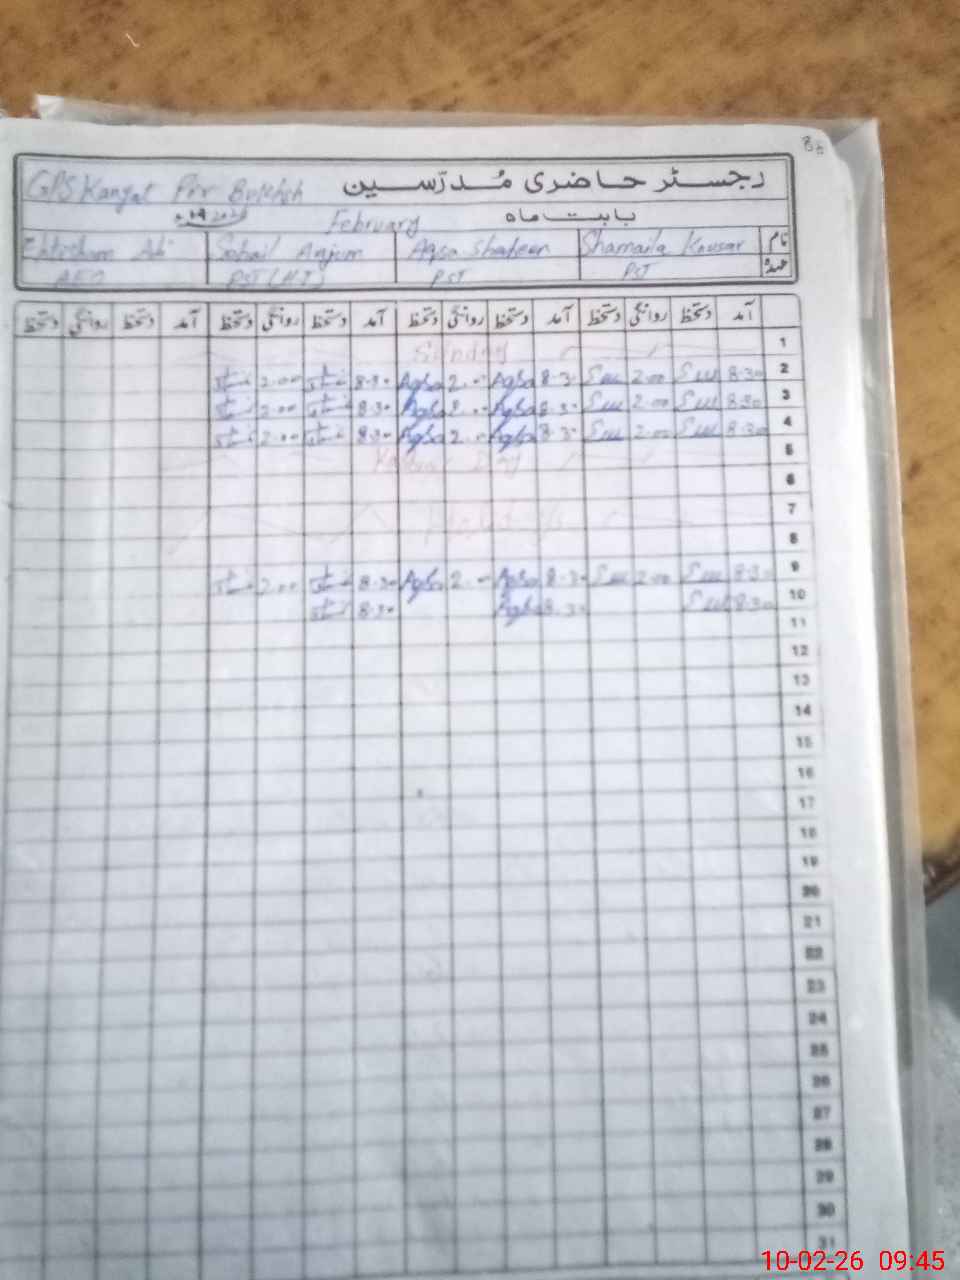 86
GPS Kangal Pir Bukhsh رجسٹر حاضری مُدرّسین
2026 February بابت ماہ
Ehtisham Ali Sohail Anjum Aqsa Shaheen Shamaila Kousar نام
AEO PST (HT) PST PST عہدہ
دستخط روانگی دستخط آمد دستخط روانگی دستخط آمد دستخط روانگی دستخط آمد دستخط روانگی دستخط آمد
Sunday 1
2.00 8.30 Aqsa 2.00 Aqsa 8.30 2.00 8.30 2
2.00 8.30 Aqsa 2.00 Aqsa 8.30 2.00 8.30 3
2.00 8.30 Aqsa 2.00 Aqsa 8.30 2.00 8.30 4
Kashmir Day 5
6
7
8
2.00 8.30 Aqsa 2.00 Aqsa 8.30 2.00 8.30 9
8.30 Aqsa 8.30 8.30 10
11
12
13
14
15
16
17
18
19
20
21
22
23
24
25
26
27
28
29
30
31
10-02-26 09:45